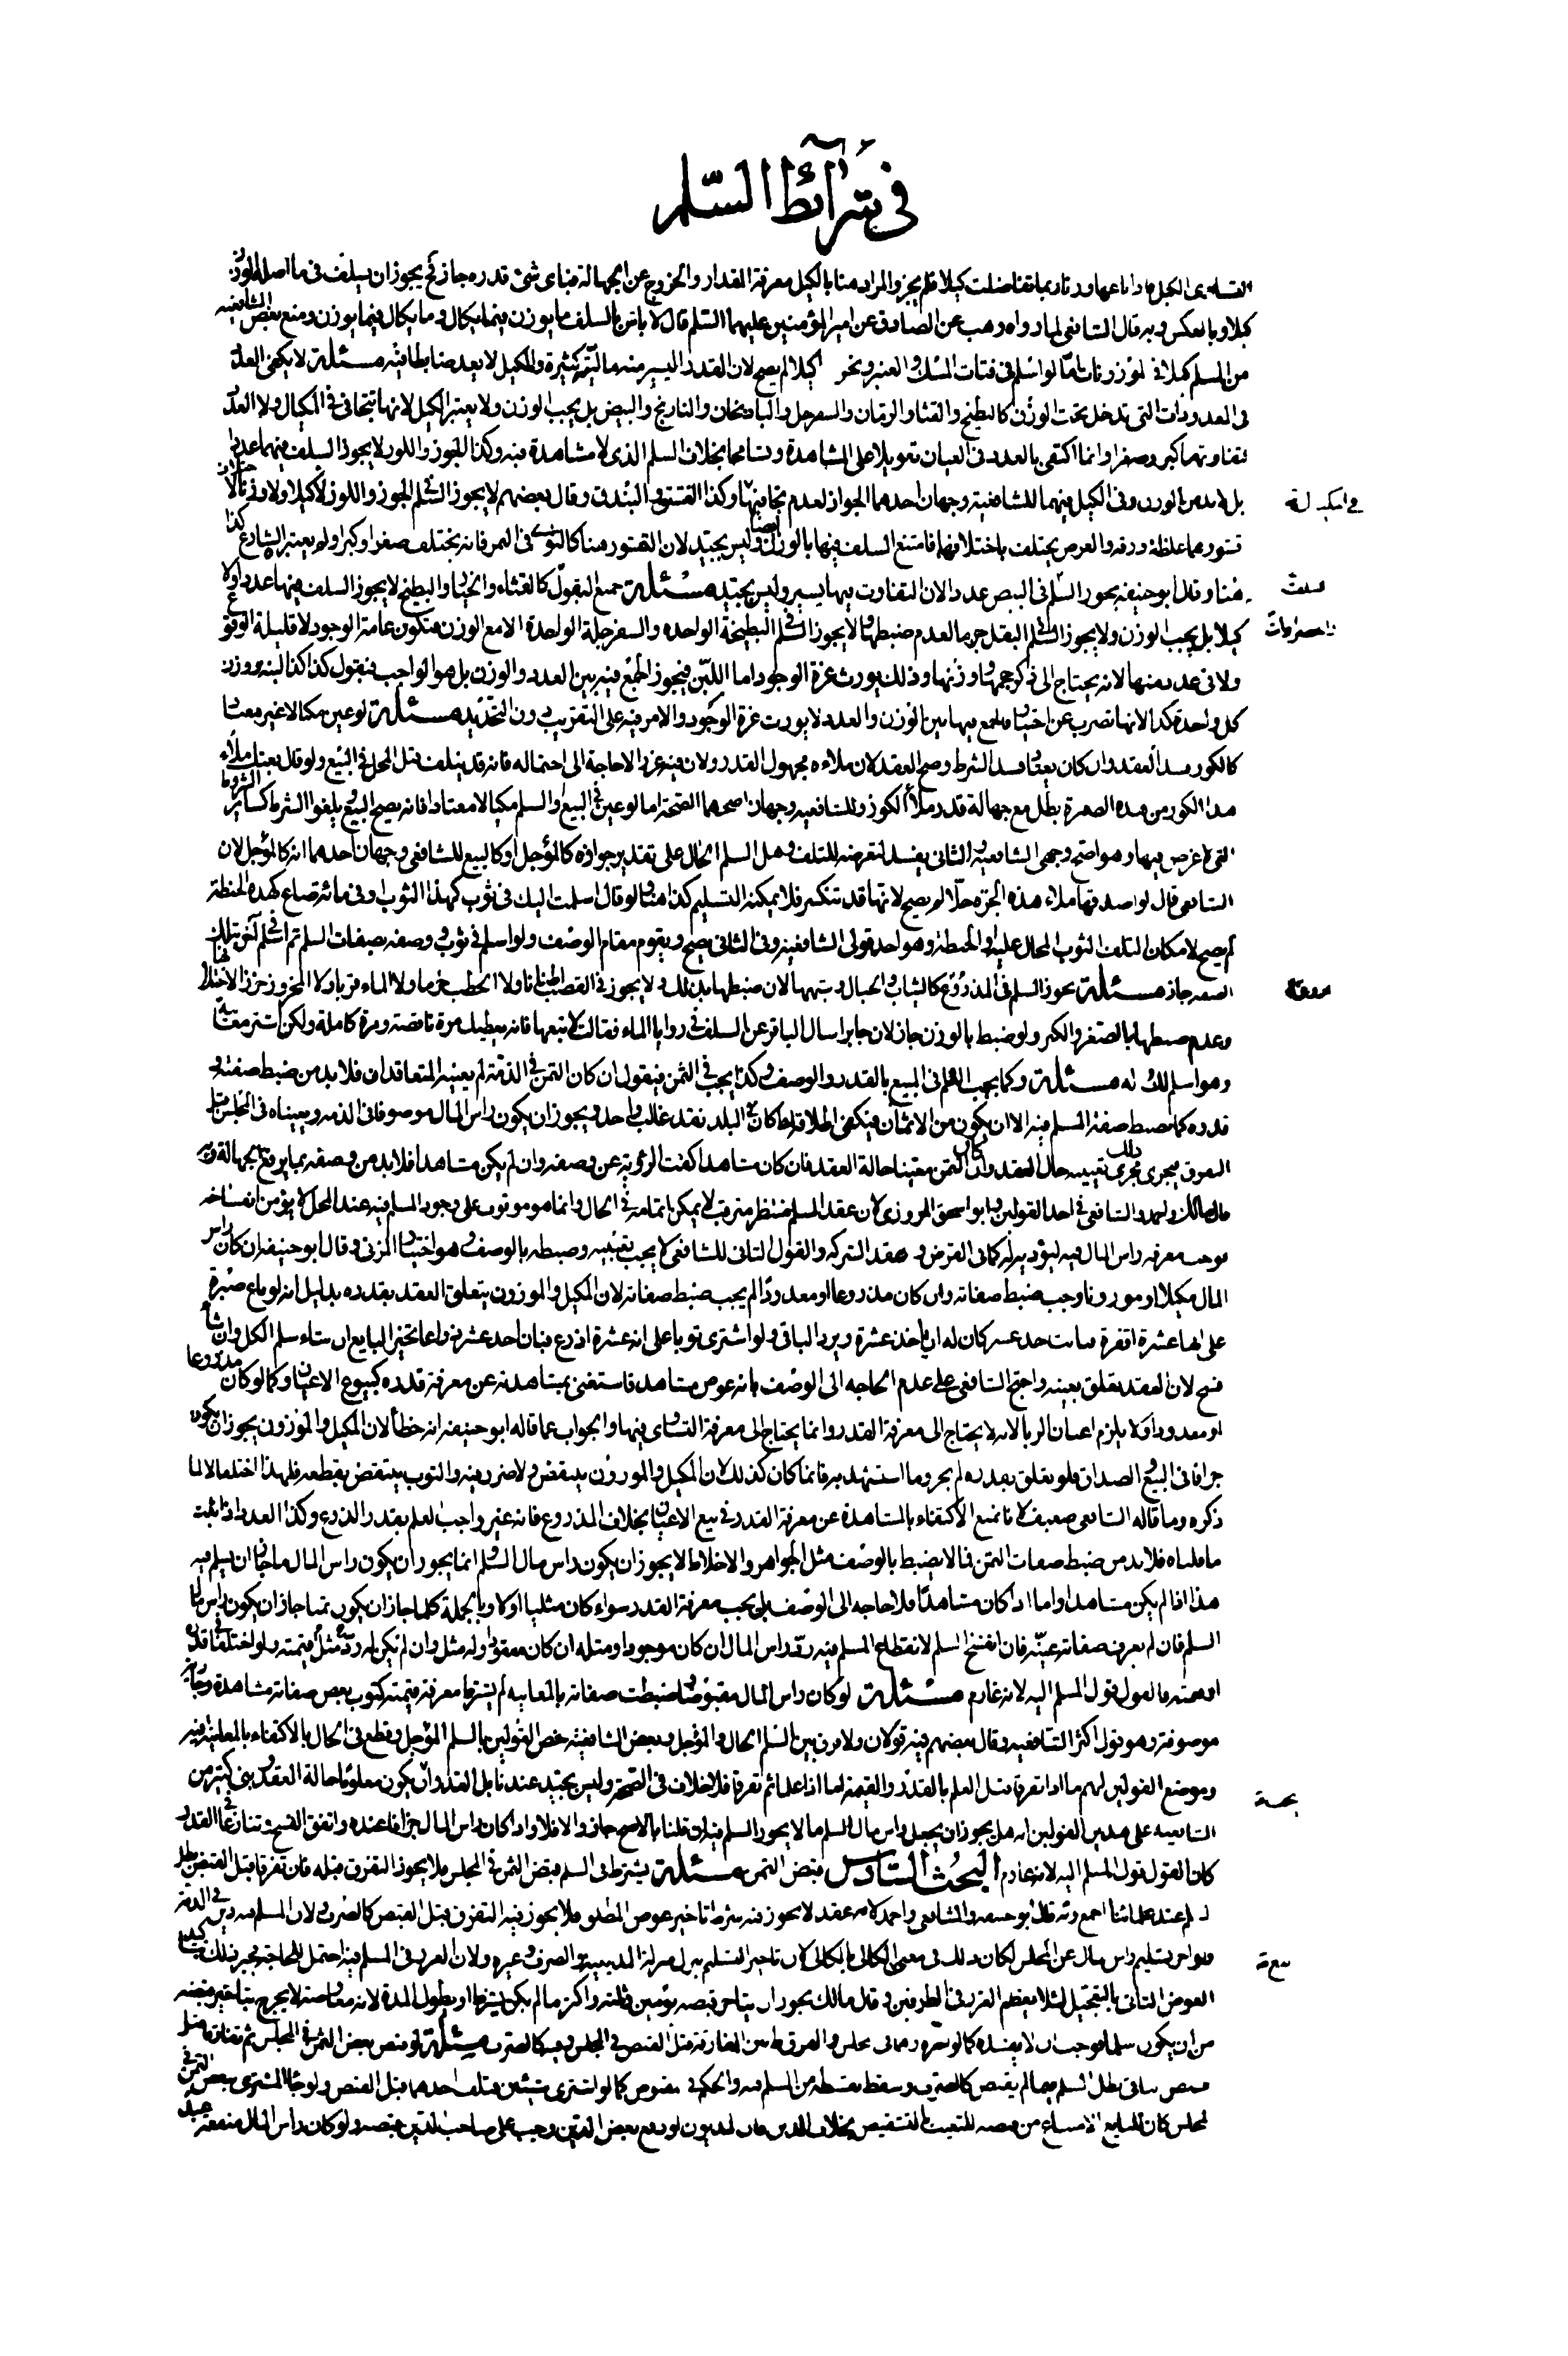 في شرائط السّلم
التساوي الكيل فاذا باعها وزنا ربما تفاضلت كيلا فلم يجز والمراد هنا بالكيل معرفة المقدار والخروج عن الجهالة فباى شئ قدره جاز فح يجوز ان يسلف في ما اصله الوزن
كيلا وبالعكس وبه قال الشافعي لما رواه وهب عن الصادق عن امير المؤمنين عليهما السّلم قال لا باس بالسلف ما يوزن فيما يكال وما يكال فيما يوزن ومنع بعض الشافعيه
من السلم كيلا في الموزونات امّا لو اسلم في فتات المسك و العنبر ونحو كيلا لم يصح لان القدر اليسير منه ماليّته كثيرة والكيل لا يعد ضابطا فيه مسئلة لا يكفى العد
في المعدودات التى تدخل تحت الوزن كالبطيخ والقثا والرمان والسفرجل والباذنجان والنارنج والبيض بل يجب الوزن ولا يعتبر الكيل لانها تتجافى في المكيال ولا العدّ
لتفاوتهما كبرا وصغرا وانما اكتفى بالعدد في العيان تعويلا على المشاهدة وتسامحا بخلاف السلم الذى لا مشاهدة فيه وكذا الجوز واللوز لا يجوز السلف فيهما عددا
بل لابد من الوزن وفى الكيل فيهما للشافعية وجهان احدهما الجواز لعدم تجافيهما وكذا الفستق و البندق وقال بعضهم لا يجوز السّلم في الجوز واللوز لا كيلا ولا وزنا لان
قشورهما غلظة ورقه والغرض يختلف باختلافهما فامتنع السلف فيها بالوزن ايضا وليس بجيد لان القشور هنا كالنوى في التمر فانه يختلف صغرا وكبرا ولم يعتبره الشارع كذا
هنا وقال ابو حنيفه يجوز السّلم في البيض عددا لان التفاوت فيها يسير وليس بجيد مسئلة جميع البقول كالقثاء والخيار والبطيخ لا يجوز السلف فيها عددا ولا
كيلا بل يجب الوزن ولا يجوز السلم في البقل حزما لعدم ضبطها ولا يجوز السلم في البطيخة الواحده والسفرجلة الواحدة الا مع الوزن فتكون عامة الوجود لا قليلة الوقوع
ولا في عدد منها لانه يحتاج الى ذكر حجمها ووزنها وذلك يورث عزة الوجود اما اللّبن فيجوز الجمع فيه بين العدد والوزن بل هو الواجب فيقول كذا كذا لبنة وزن
كل واحدة كذا لانها تضرب عن اختيار فالجمع فيها بين الوزن والعدد لا يورث عزة الوجود والامر فيه على التقريب دون التحديد مسئلة لو عين مكيالا غير معتاد
كالكوز فسد العقد وان كان يعتاد فسد الشرط وصح العقد لان ملاءه مجهول القدر ولان فيه غررا لا حاجة الى احتماله فانه قد يتلف قبل المحل وفي البيع لو قال بعتك ملاء
هذا الكوز من هذه الصبرة بطل مع جهالة قدر ملأ الكوز وللشافعيه وجهان اصحهما الصّحة اما لو عين في البيع والسلم مكيالا معتادا فانه يصح البيع ويلغوا الشرط كسائر الشروط
التى لا غرض فيها وهو اصح وجهى الشافعيه و الثانى يفسد لتعرضه للتلف وهل السلم الحال على تقدير جوازه كالمؤجل او كالبيع للشافعي وجهان احدهما انه كالمؤجل لان
الشافعي قال لو اصدقها ملاء هذه الجرّه خلّا لم يصح لانها قد تنكسر فلا يمكنه التسليم كذا هنا ولو قال اسلمت اليك في ثوب كهذا الثوب او في مائة صاع كهذه الحنطة
لم يصح لامكان التلف الثوب المحال عليه او الحنطة وهو احد قولى الشافعيه وفي الثانى يصح ويقوم مقام الوصف ولو اسلم في ثوب ووصفه بصفات السلم ثم اسلم في آخر بتلك
الصفه جاز مسئلة يجوز السلم في المذروع كالثياب والحبال وشبهها لان ضبطها بذلك ولا يجوز في القصب اطنانا ولا الحطب حزما ولا الماء قربا ولا المخروز خرزا لاختلافها
وعدم ضبطها بالصغر والكبر ولو ضبط بالوزن جاز لان جابرا سال الباقر عن السلف في روايا الماء فقال لا تبعها فانه يعطيك مرة ناقصة ومرة كاملة ولكن اشتر معاينة
وهو اسلم لك وله مسئلة وكما يجب العلم في المبيع بالقدر والوصف و كذا يجب في الثمن فيقول ان كان الثمن في الذمّة لم يعينه المتعاقدان فلابد من ضبط صفته و
قدره كما يضبط صفة المسلم فيه الا ان يكون من الاثمان فيكفى اطلاقه اذا كان في البلد نقد غالب واحد ويجوز ان يكون راس المال موصوفا في الذمه ويعيناه في المجلس قبل
التفرق فيجرى ذلك مجرى تعيينه حال العقد وان كان الثمن معينا حالة العقد فان كان مشاهدا كفت الرؤية عن وصفه وان لم يكن مشاهدا فلابد من وصفه بما يرفع الجهالة وبه
قال مالك واحمد والشافعي في احد القولين وابو اسحق المروزي لان عقد السلم منتظر مترقب لا يمكن اتمامه في الحال وانما هو موقوف على وجود المسلم فيه عند المحل لا يؤمن انفساخه
فوجب معرفه راس المال فيه ليؤدى بدله كما في القرض و عقد الشركه والقول الثانى للشافعي لا يجب تعيينه وضبطه بالوصف و هو اختيار المزنى وقال ابو حنيفه ان كان راس
المال مكيلا او موزونا وجب ضبط صفاته وان كان مذروعا او معدودا لم يجب ضبط صفاته لان المكيل والموزون يتعلق العقد بقدره بدليل انه لو باع صبرة
على انها عشرة اقفزة فبانت احد عشر كان له ان ياخذ عشرة ويرد الباقى ولو اشترى ثوبا على انه عشرة اذرع فبان احد عشر ذراعا تخير البايع ان شاء سلم الكل وان شاء
فسخ لان العقد تعلق بعينه واحتج الشافعي على عدم الحاجه الى الوصف بانه عوض مشاهد فاستغنى بمشاهدته عن معرفة قدره كبيوع الاعيان وكما لو كان مذروعا
او معدودا ولا يلزم اعيان الربا لانه لا يحتاج الى معرفة القدر وانما يحتاج الى معرفة التساوى فيها والجواب عما قاله ابو حنيفه انه خطأ لان المكيل والموزون يجوز ان يكون
جزافا في البيع و الصداق فلو تعلق بقدره لم يجز وما استشهد به فانما كان كذلك لان المكيل والموزون ينتقض ولا ضرر فيه والثوب ينتقض بقطعه فلهذا اختلفا لا لما
ذكره وما قاله الشافعي ضعيف لانا نمنع الاكتفاء بالمشاهدة عن معرفة القدر في بيع الاعيان بخلاف المذروع فانه غير واجب العلم بقدر الذرع وكذا العدد اذا ثبت
ما قلناه فلابد من ضبط صفات الثمن فما لا يضبط بالوصف مثل الجواهر والاخلاط لا يجوز ان يكون راس مال السّلم و انما يجوز ان يكون راس المال ما جاز ان يسلم فيه
هذا اذا لم يكن مشاهدا واما اذا كان مشاهدا فلا حاجه الى الوصف بلى يجب معرفة القدر سواء كان مثليا او لا وبالجملة كلما جاز ان يكون ثمنا جاز ان يكون راس مال
السلم فان لم يعرف صفاته عينّه فان انفسخ السلم لانقطاع المسلم فيه ردّ راس المال ان كان موجودا ومثله ان كان مفقودا وله مثل وان لم يكن له مثل ردّ قيمته ولو اختلفا في قدره
او قيمته فالقول قول المسلم اليه لانه غارم مسئلة لو كان راس المال مقبوضا و ضبطت صفاته بالمعاينه لم يشترط معرفة قيمته كثوب بعض صفاته مشاهدة وجارية
موصوفة وهو قول اكثر الشافعيه وقال بعضهم فيه قولان ولا فرق بين السّلم الحال والمؤجل وبعض الشافعيه خص القولين بالسلم المؤجل وقطع في الحال بالاكتفاء بالمعاينة فيه
وموضع القولين لهم ما اذا تفرقا قبل العلم بالقدر والقيمة اما اذا علما ثم تفرقا فلا خلاف في الصّحة وليس بجيد عندنا بل القدر وان يكون معلوما حالة العقد وبنى كثير من
الشافعيه على هذين القولين انه هل يجوز ان يجعل راس مال السلم ما لا يجوز السلم فيه ان قلنا بالاصح جاز والا فلا واذا كان راس المال جزافا عنده واتفق الفسخ وتنازعا في القدر
كان القول قول المسلم اليه لانه غارم البحث السّادس قبض الثمن مسئلة يشترط في السلم قبض الثمن في المجلس فلا يجوز التفرق قبله فان تفرقا قبل القبض بطل
السلم عند علمائنا اجمع وبه قال ابو حنيفه والشافعي واحمد لانه عقد لا يجوز فيه شرط تاخير عوض المطلق فلا يجوز فيه التفرق قبل القبض كالصرف ولان المسلم فيه دين في الذمة
فلو اخر تسليم راس مال عن المجلس لكان ذلك في معنى الكالى بالكالى لان تاخير التسليم ينزل منزلة الدينية في الصرف وغيره ولان الغرر في المسلم فيه احتمل للحاجة فجبر ذلك بتاكيد
العوض الثانى بالتعجيل لئلا يعظم الغرر في الطرفين وقال مالك يجوز ان يتاخر قبضه يومين و ثلثه واكثر ما لم يكن شرطا او يطول المدة لانه معاوضة لا يخرج بتاخير قبضه
من ان يكون سلما فوجب ان لا يفسده كما لو تاخر وهما في مجلس والفرق ما بين المفارقة قبل القبض في المجلس وبعد كالصرف مسئلة لو قبض بعض الثمن في المجلس ثم تفارقا قبل
قبض باقى بطل السلم فيما لم يقبض كالصرف وسقط بقسطه من المسلم فيه والحكم في مقبوض كما لو اشترى شيئين فتلف احدهما قبل القبض ولو جاء المشترى ببعض الثمن في
المجلس كان للبايع الامتناع من قبضه للتعيب بالتشقيص بخلاف الدين فان المديون لو دفع بعض الدين وجب على صاحب الدين قبضه ولو كان راس المال منفعة عبد